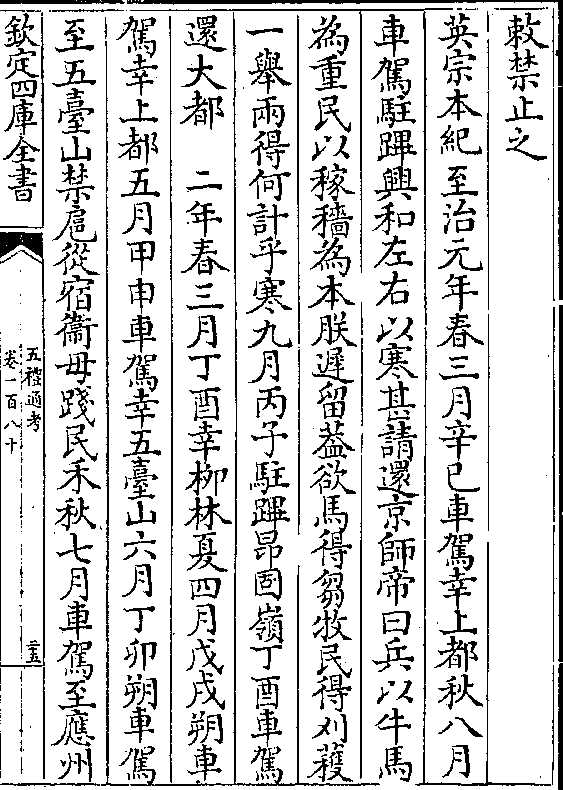 敕禁止之
英宗本紀至治元年春三月辛巳車駕幸上都秋八月
車駕駐蹕興和左右以寒甚請還京師帝曰兵以牛馬
為重民以稼穡為本朕遲留葢欲馬得芻牧民得刈穫
一舉兩得何計乎寒九月丙子駐蹕昂固嶺丁酉車駕
還大都　二年春三月丁酉幸柳林夏四月戊戌朔車
駕幸上都五月甲申車駕幸五臺山六月丁卯朔車駕
至五臺山禁扈從宿衞毋踐民禾秋七月車駕至應州
欽定四庫全書
五禮通考
卷一百八十
二五